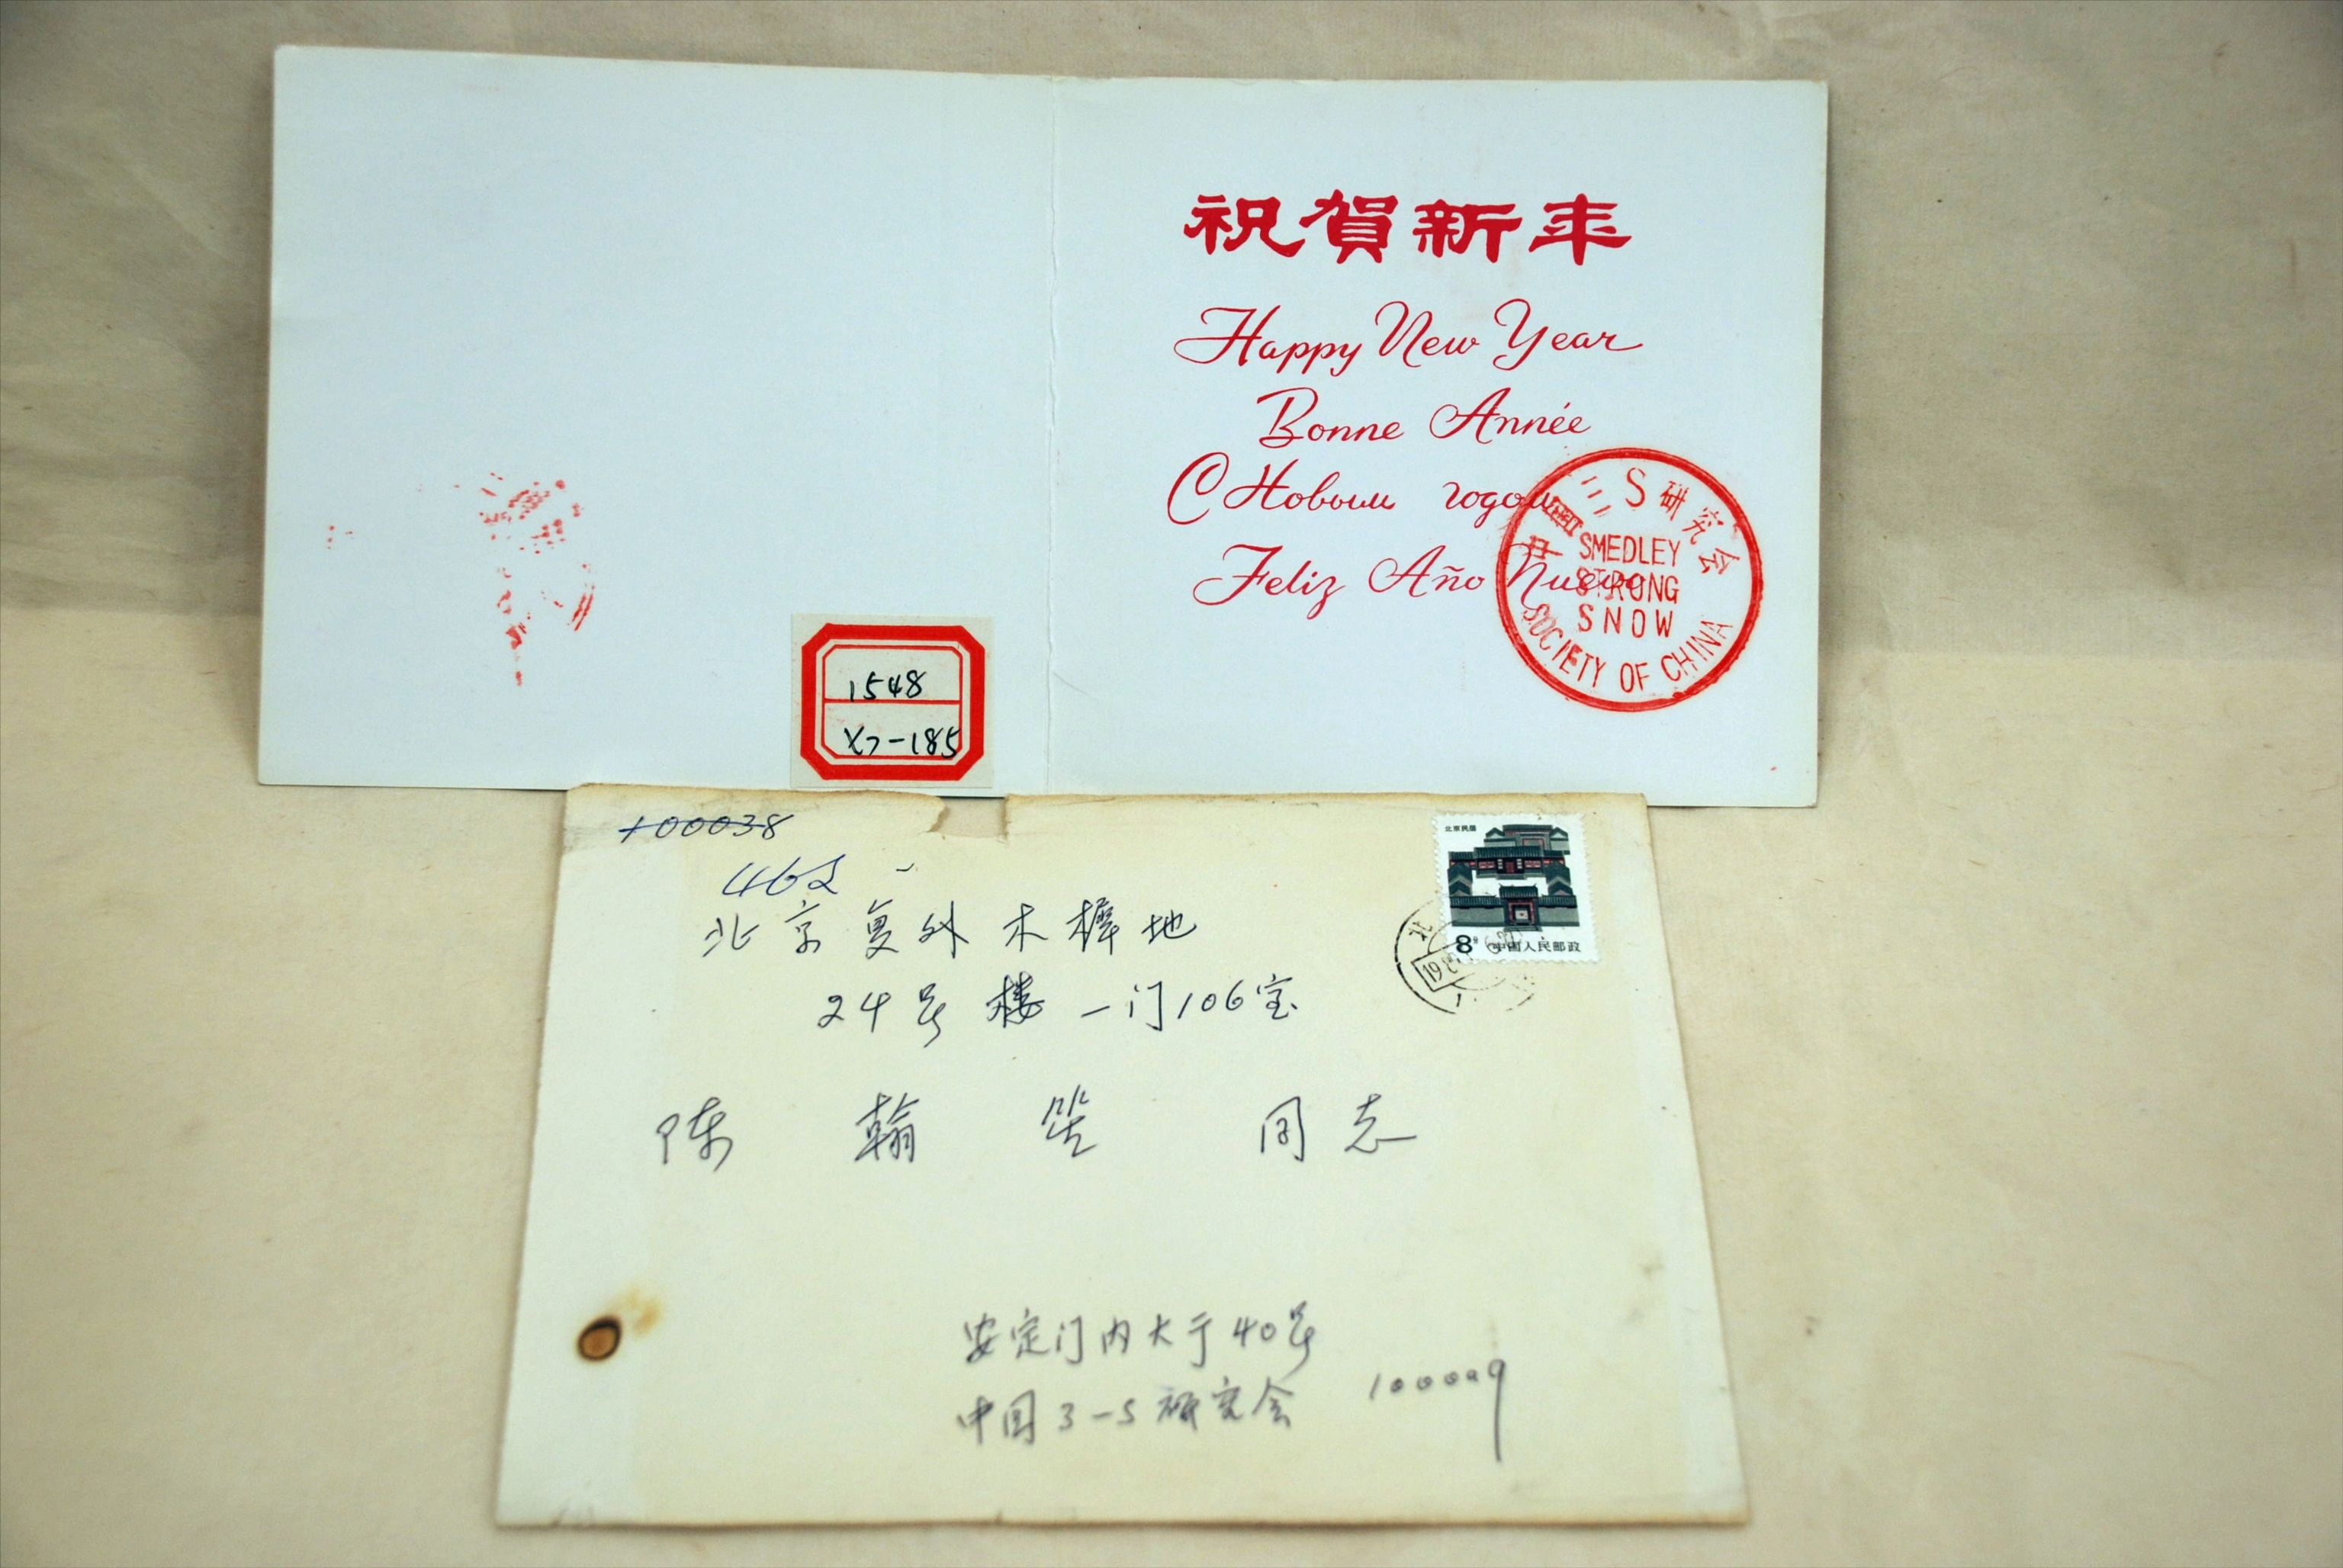 祝賀新年
Happy New Year
Bonne Année
С Новым годом
Feliz Año Nuevo
中国三S研究会
SMEDLEY
STRONG
SNOW
SOCIETY OF CHINA
1548
X7-185
100038
462
北京复外木樨地
24号楼一门106室
陈翰笙同志
北京民居
8分 中国人民邮政
北
安定门内大于40号
中国3-S研究会 100009